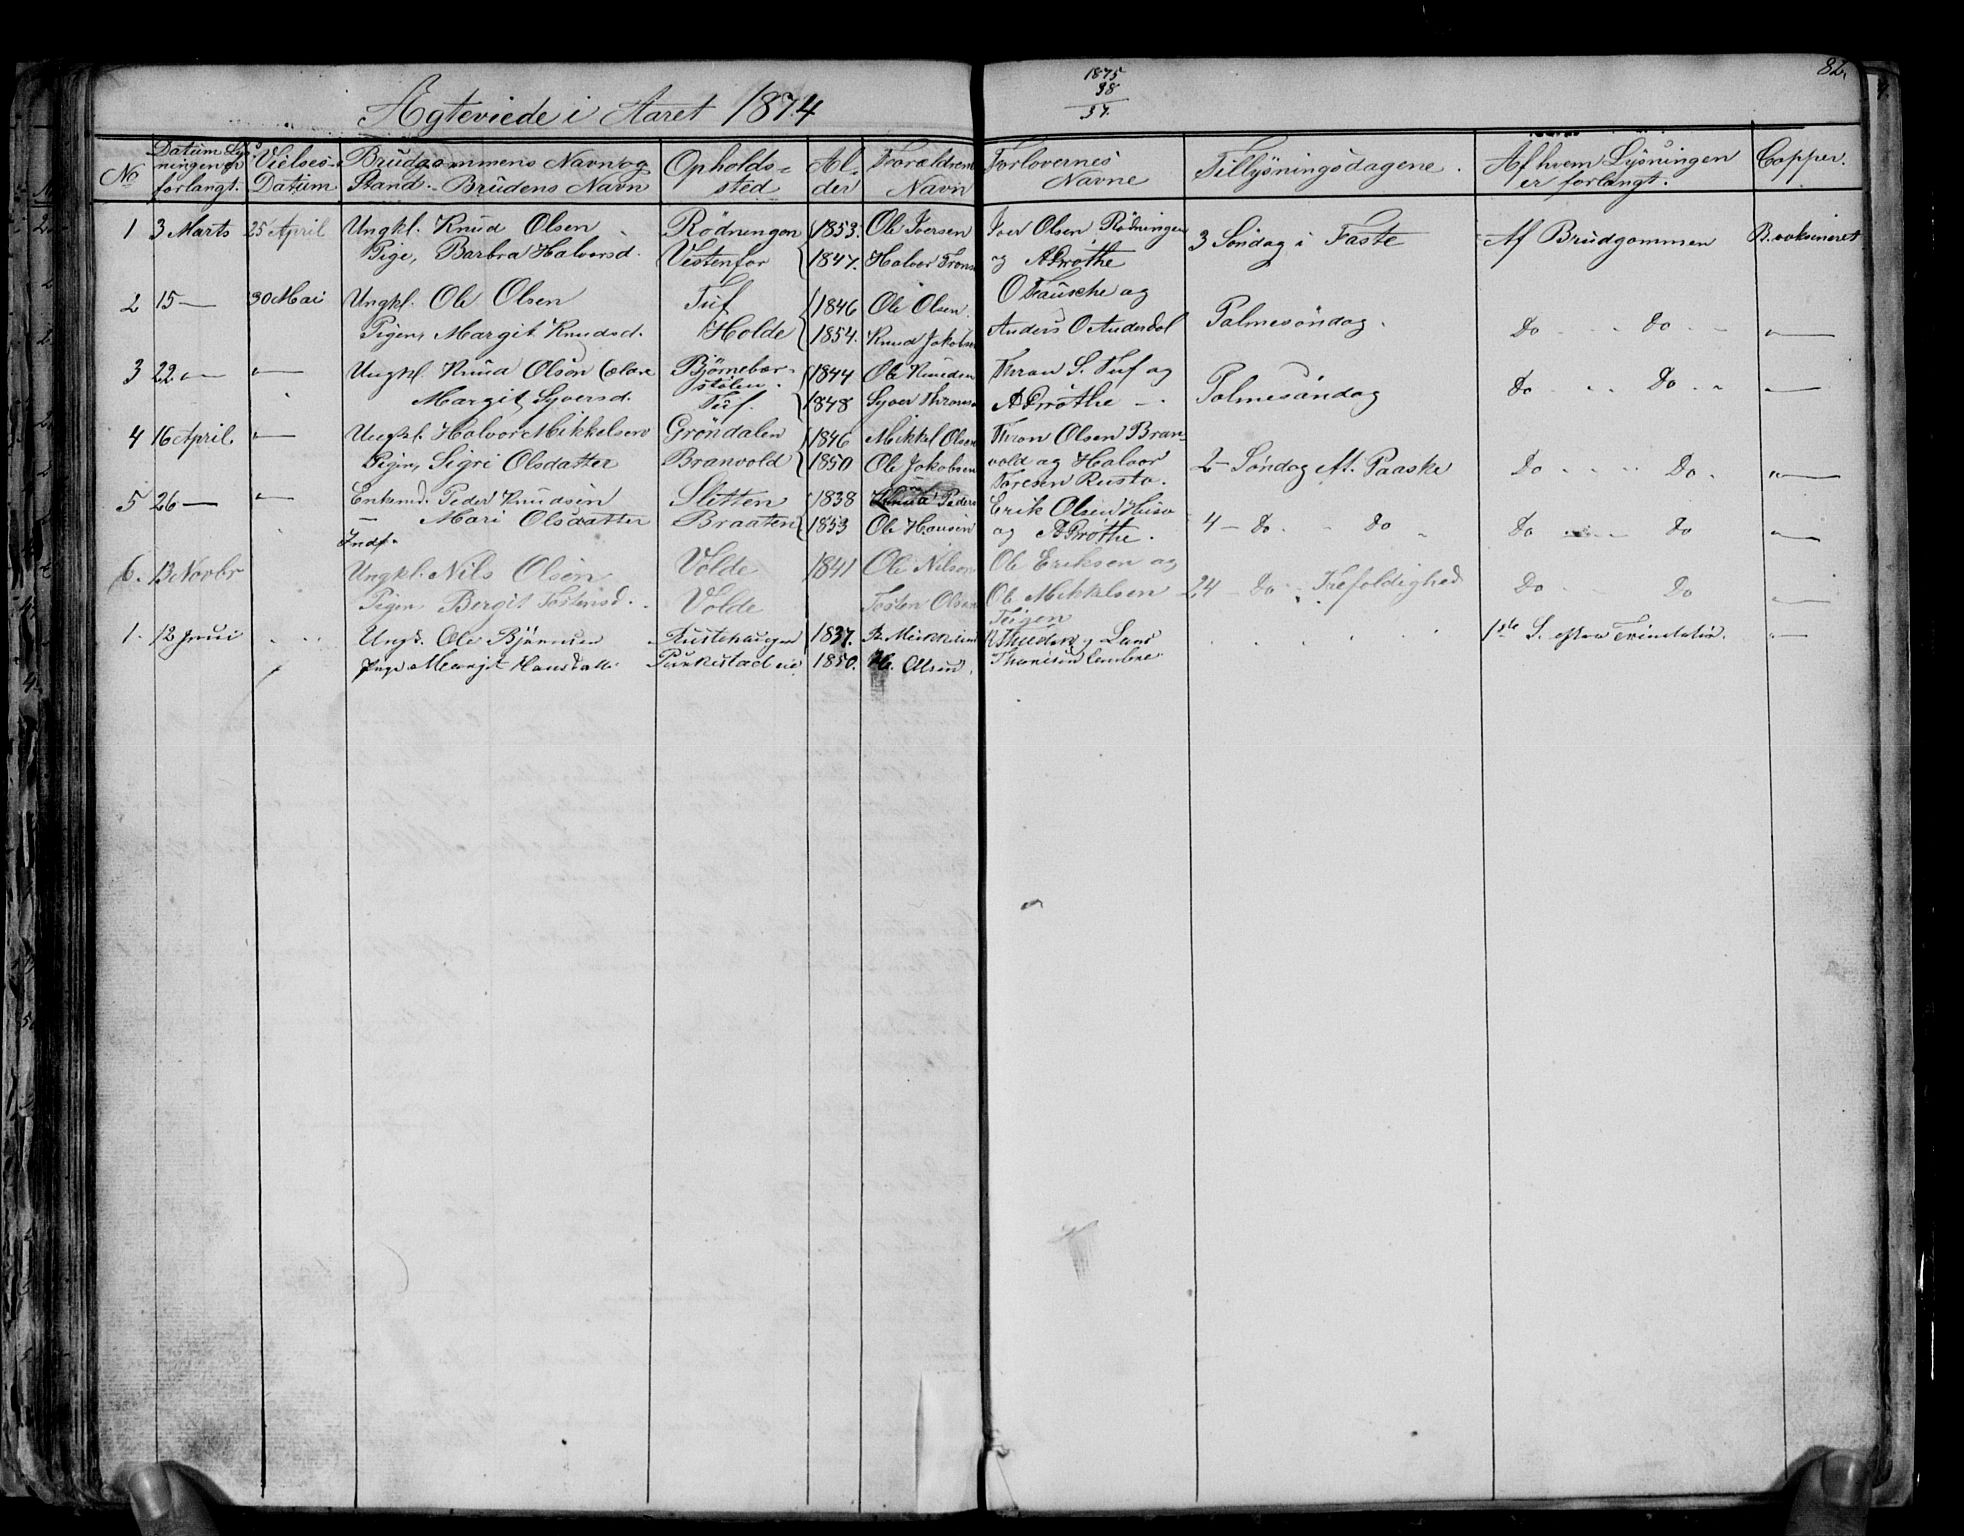 82.
Ægteviede i Aaret 1874
1875
38
37.
No
Datum Lysningen er forlangt.
Vielses-Datum
Brudgommens Navn og Stand. Brudens Navn
Opholdssted
Alder
Forældrenes Navn
Forlovernes Navne
Tillysningsdagene.
Af hvem Lysningen er forlangt.
Copper.
1 3 Marts 25 April Ungkl. Knud Olsen Rødningen 1853. Ole Iversen Iver Olsen Rødningen 3 Søndag i Faste Af Brudgommen B. vaksineret
Pige, Barbra Halvorsd. Vestenfor 1847. Halvor Trons og A Prøthe
2 15 — 30 Mai Ungkl. Ole Olsen Tuf 1846 Ole Olsen. O Fausche og Palmesøndag. Do Do —
Pigen, Margit Knudsd. Holde 1854. Knud Jakobs Anders O Anderdal
3 22 — — Ungkl. Knud Olsen Bjørnebær- 1844 Ole Knudsen Thron S. Tuf og Palmesøndag Do Do —
stølen.
Margit Syversd. Tuf. 1848 Syver Throns A Prøthe —.
4 16 April. — Ungkl. Halvor Mikkelsen Grøndalen 1846 Mikkel Olsen Thron Olsen Bran-
Pigen, Sigri Olsdatter Branvold 1850 Ole Jakobsen vold og Halvor 2 - Søndag Af. Paaske Do Do. —
Toresen Rusto.
5 26 — — Enkmd. Peder Knudsen Sletten 1838 Knud Peders Erik Olsen
— Mari Olsdatter Braaten 1853 Ole Hansen og A Prøthe. 4 - Do. Do Do Do —
Indf.
6. 13 Novbr Ungkl. Nils Olsen Volde 1841 Ole Nilsen Ole Eriksen og
Pigen Bergit Tostensd. Volde Tosten Olsen Ole Mikkelsen 24 - Do Trefoldighed Do Do —
Teigen
1. 12 Juni Ungk. Ole Bjørnsen Rustehaugen 1837. B. Mikkels K Thuesen og Lars 1ste S. efter Trinitatis. —
Pige Margit Hansdatter 1850. H. Olsen. Thoresen